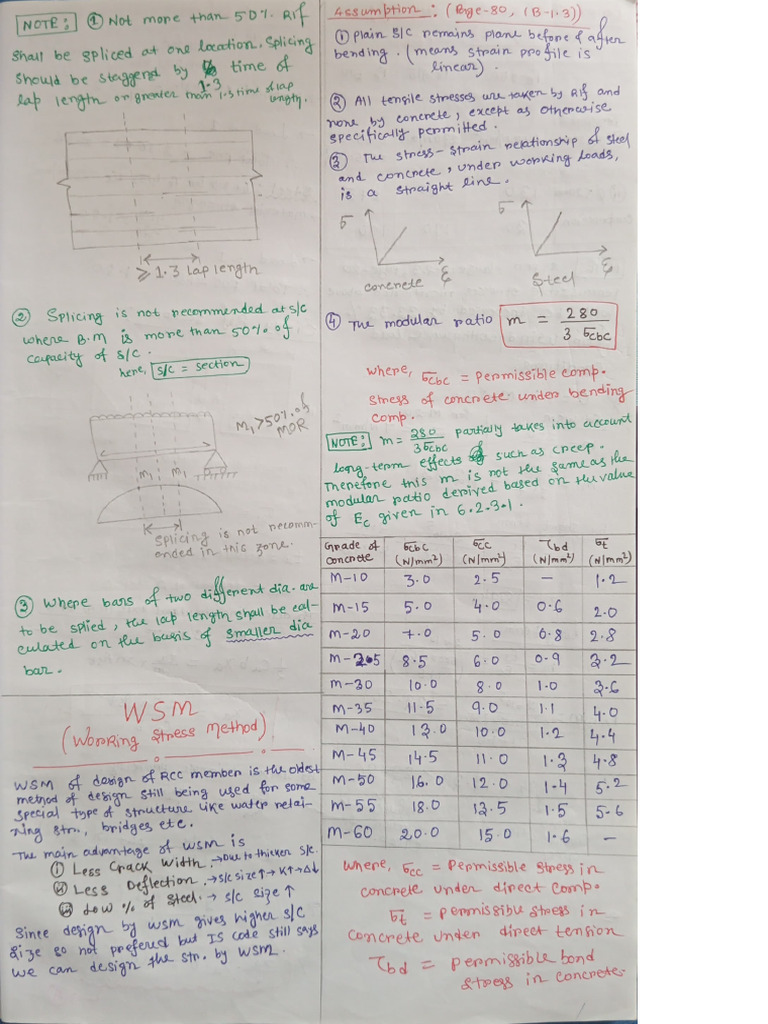 NOTE: ① Not more than 50% Rif
shall be spliced at one location. Splicing
should be staggend by time of
1.3
lap length or greater than 1.3 time of lap
length.
⩾ 1.3 lap length
② Splicing is not recommended at s/c
where B.M is more than 50% of
capacity of s/c.
here, s/c = section
M₁ > 50% of
MOR
M₁ M₁
Splicing is not recomm-
ended in this zone.
③ Where bars of two different dia. are
to be splied, the lap length shall be cal-
culated on the basis of smaller dia
bar.
WSM
(Working Stress Method)
WSM of design of RCC member is the oldest
method of design still being used for some
special type of structure like water retai-
ning str., bridges etc.
The main advantage of WSM is
ⓘ Less Crack Width → Due to thicker s/c.
ⓘⓘ Less Deflection → s/c size↑ → K↑ → Δ↓
ⓘⓘⓘ Low % of steel. → s/c size ↑
Since design by WSM gives higher s/c
size so not preferred but IS code still says
we can design the str. by WSM.
Assumption: (Page-80, (B-1.3))
① Plain s/c remains plane before & after
bending. (means strain profile is
linear).
② All tensile stresses are taken by Rif and
none by concrete, except as otherwise
specifically permitted.
③ The stress-strain relationship of steel
and concrete, under working loads,
is a straight line.
σ σ
ξ ξ
concrete steel
④ The modular ratio m = 280 / 3 σcbc
where, σcbc = Permissible comp.
stress of concrete under bending
comp.
NOTE: m = 280 / 3σcbc partially takes into account
long-term effects such as creep.
Therefore this m is not the same as the
modular ratio derived based on the value
of Ec given in 6.2.3.1.
Grade of concrete σcbc (N/mm²) σcc (N/mm²) τbd (N/mm²) σt (N/mm²)
M-10 3.0 2.5 – 1.2
M-15 5.0 4.0 0.6 2.0
M-20 7.0 5.0 0.8 2.8
M-25 8.5 6.0 0.9 3.2
M-30 10.0 8.0 1.0 3.6
M-35 11.5 9.0 1.1 4.0
M-40 13.0 10.0 1.2 4.4
M-45 14.5 11.0 1.3 4.8
M-50 16.0 12.0 1.4 5.2
M-55 18.0 13.5 1.5 5.6
M-60 20.0 15.0 1.6 –
where, σcc = Permissible Stress in
concrete under direct comp.
σt = Permissible stress in
concrete under direct tension
τbd = permissible bond
stress in concrete.